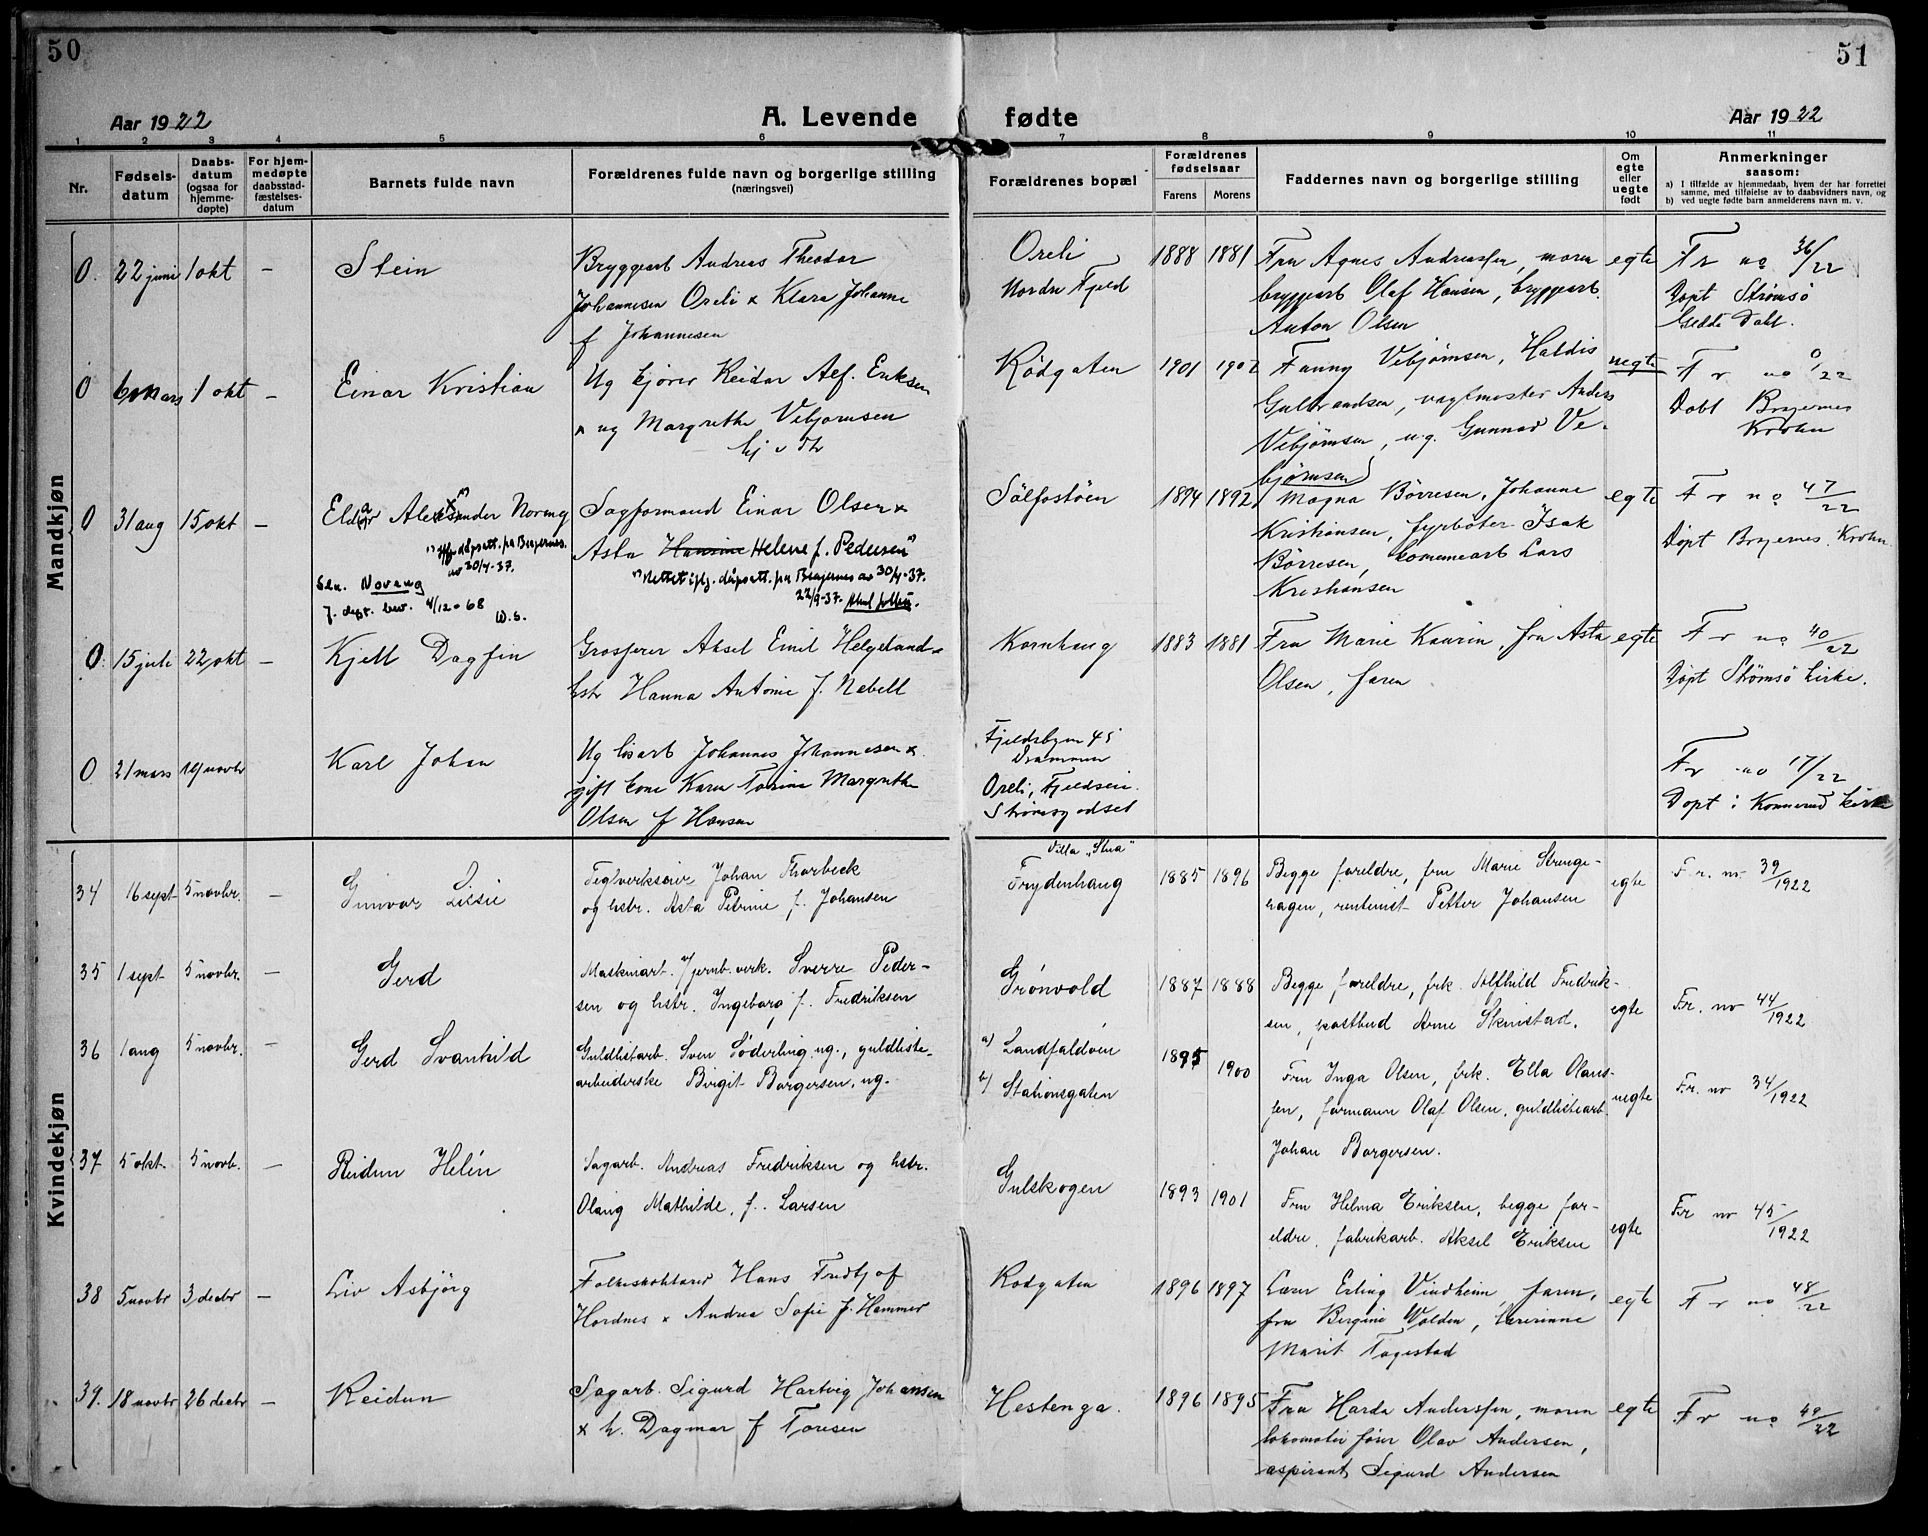 50
51
Aar 1922
A. Levende fødte
Aar 1922
1 2 3 4 5 6 7 8 9 10 11
Nr.
Fødsels-
datum
Daabs-
datum
(ogsaa for
hjemme-
døpte)
For hjem-
medøpte
daabsstad-
fæstelses-
datum
Barnets fulde navn
Forældrenes fulde navn og borgerlige stilling
(næringsvei)
Forældrenes bopæl
Forældrenes
fødselsaar
Farens Morens
Faddernes navn og borgerlige stilling
Om
egte
eller
uegte
født
Anmerkninger
saasom:
a) I tilfælde av hjemmedaab, hvem der har forrettet
samme, med tilføielse av to daabsvidners navn, og
b) ved uegte fødte barn anmelderens navn m. v.
Mandkjøn
0. 22 juni 1 okt – Stein
Bryggearb Andreas Theodor
Johannesen Oreli x Klara Johanne
f Johannesen
Oreli
Nordre Fjeld
1888 1881
Fru Agnes Andreassen, moren
bryggearb Olaf Hansen, bryggearb.
Anton Olsen
egte
Fr no 36/22
Døpt Strømsø
Gedde Dahl.
0 6 mars 1 okt – Einar Kristian
Ug kjører Reidar Alf. Eriksen
x ug Margrethe Vebjørnsen
Rødgaten
1901 1902
Fanny Vebjørnsen, Haldis
Gulbrandsen, vagtmester Anders
Vebjørnsen, ug. Gunnar Ve-
bjørnsen
uegte
Fr no 0/22
Døbt Bragernes
Krohn
0 31 aug 15 okt – Eldar Alexander Noreng
iflg. dåpsatt. fra Bragernes.
av 20/4-37.
Sln. Noreng
J. dept. bev. 4/12-68 W.S.
Sagformand Einar Olsen x
Asta Hansine Helene f. Pedersen
Rettet iflg. dåpsatt. fra Bragernes av 30/4-37.
22/9-37.
Sølfastøen
1894 1892
Magna Børresen, Johanne
Kristiansen, fyrbøter Isak
Børresen, tommearb Lars
Kristiansen
egte
Fr no 47/22
Døpt Bragernes. Krohn
0. 15 juli 22 okt – Kjell Dagfin
Grosserer Aksel Emil Helgeland x
hstr Hanna Antonie f. Nebell
Kornhaug
1883 1881
Fru Marie Kaurin, fru Asta
Olsen, faren
egte
Fr no 40/22
Døpt Strømsø kirke.
0 21 mars 19 novbr Karl Johan
Ug løsarb Johannes Johannesen x
gift kone Karen Torine Margrethe
Olsen f Hansen
Fjeldsbyen 45
Drammen
Oreli, Fjeldsein.
Strømsgodset
Fr no 17/22
Døpt i Konnerud kirke
Kvindekjøn
34 16 sept 5 novbr. – Gunvor Lilsie
Teglverkseier Johan Thorbeck
og hstr. Asta Petrine f. Johansen
Villa „Stua"
Frydenhaug
1885 1896
Begge foreldre, fru Marie Strenge-
hagen, rentenist Petter Johansen
egte
Fr. nr 39/1922
35 1 sept 5 novbr. – Gerd
Maskinarb. Jernb.verk. Sverre Peder-
sen og hstr. Ingeborg f. Fredriksen
Grønvold
1887 1888
Begge foreldre, frk. Alfhild Fredrik-
sen, postbud Arne Skinstad.
egte
Fr. nr 44/1922
36 1 aug 5 novbr. – Gerd Svanhild
Guldlistarb. Sven Söderling ug., guldliste-
arbeiderske Birgit Borgersen, ug.
a) Landfaldøen
b) Stationsgaten
1895 1900
Fru Inga Olsen, frk. Ella Olaus-
sen, formann Olaf Olsen, guldlistearb.
Johan Borgersen.
uegte
Fr. nr 34/1922
37 5 okt. 5 novb. – Reidun Helén
Sagarb. Andreas Fredriksen og hstr.
Olaug Mathilde, f. Larsen
Gulskogen
1893 1901
Fru Helma Eriksen, begge for-
eldre, fabrikarb. Aksel Eriksen
egte
Fr nr 45/1922
38 5 novbr 3 decbr – Liv Asbjørg
Folkeskolelærer Hans Fredtjof
Hordnes x Andrea Sofie f. Hammer
Rødgaten
1896 1897
Lærer Erling Vindheim, faren,
fru Bergine Wolden, lærerinne
Marit Tagestad
egte
Fr no 48/22
39. 18 novbr 26 decbr – Reidun
Sagarb. Sigurd Hartvig Johansen
x h. Dagmar f Toresen
Hestenga.
1896 1895
Fru Harda Anderssen, moren
lokomotivfører Olav Andersen,
aspirant Sigurd Andersen
egte
Fr no 49/22